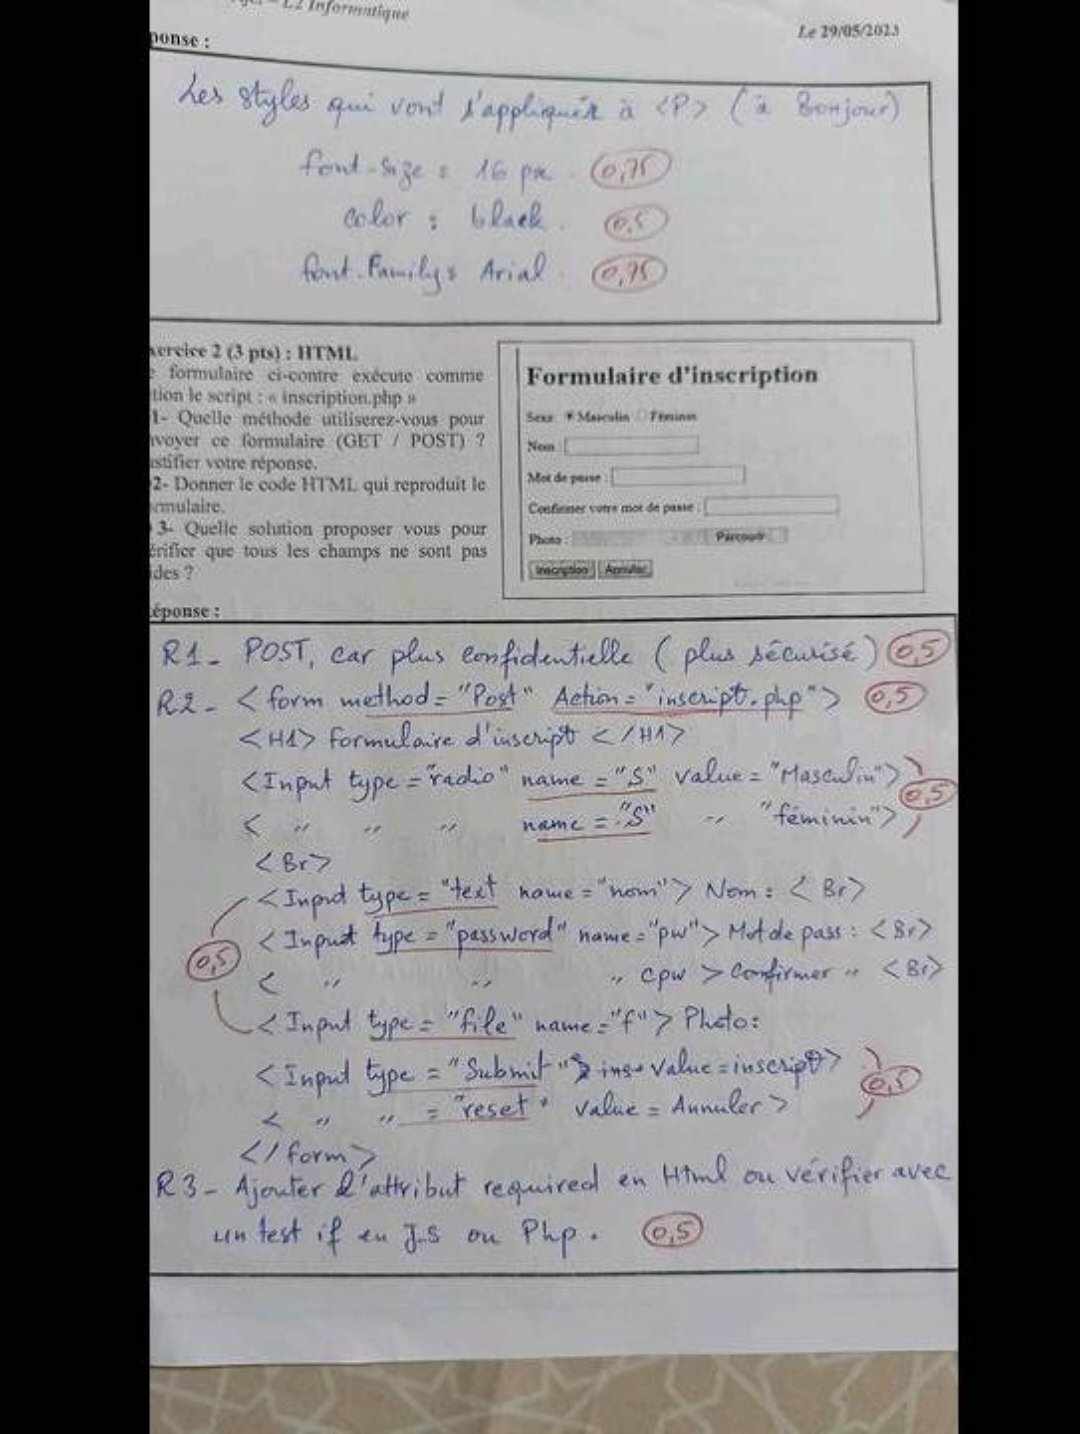 L2 Informatique
Le 29/05/2023
ponse :
Les styles qui vont s'appliquér à <P> (à Bonjour)
font-size : 16 px. 0,75
color : black. 0,5
font-Family : Arial. 0,75
xercice 2 (3 pts) : HTML
e formulaire ci-contre exécute comme
tion le script : « inscription.php »
1- Quelle méthode utiliserez-vous pour
nvoyer ce formulaire (GET / POST) ?
ustifier votre réponse.
2- Donner le code HTML qui reproduit le
ormulaire.
3- Quelle solution proposer vous pour
érifier que tous les champs ne sont pas
ides ?
Formulaire d'inscription
Sexe Masculin Féminin
Nom
Mot de passe :
Confirmer votre mot de passe :
Photo : Parcourir
Inscription Annuler
éponse :
R1- POST, car plus confidentielle (plus sécurisé) 0,5
R2- <form method="Post" Action="inscript.php"> 0,5
<H1> Formulaire d'inscript </H1>
<Input type="radio" name="S" value="Masculin">
< " " " name="S" " "féminin"> 0,5
<Br>
<Input type="text name="nom"> Nom : <Br>
<Input type="password" name="pw"> Mot de pass : <Br>
0,5 < " " " cpw > Confirmer " <Br>
<Input type="file" name="f"> Photo:
<Input type="Submit" value=inscript>
< " " = "reset" value = Annuler> 0,5
</form>
R3- Ajouter l'attribut required en Html ou vérifier avec
un test if en J.S ou Php. 0,5